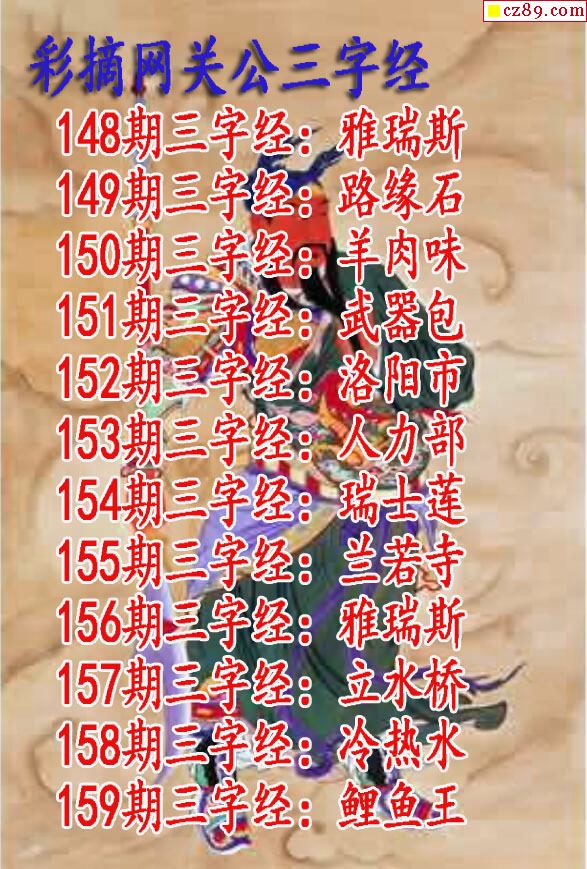 cz89.com
彩摘网关公三字经
148期三字经：雅瑞斯
149期三字经：路缘石
150期三字经：羊肉味
151期三字经：武器包
152期三字经：洛阳市
153期三字经：人力部
154期三字经：瑞士莲
155期三字经：兰若寺
156期三字经：雅瑞斯
157期三字经：立水桥
158期三字经：冷热水
159期三字经：鲤鱼王